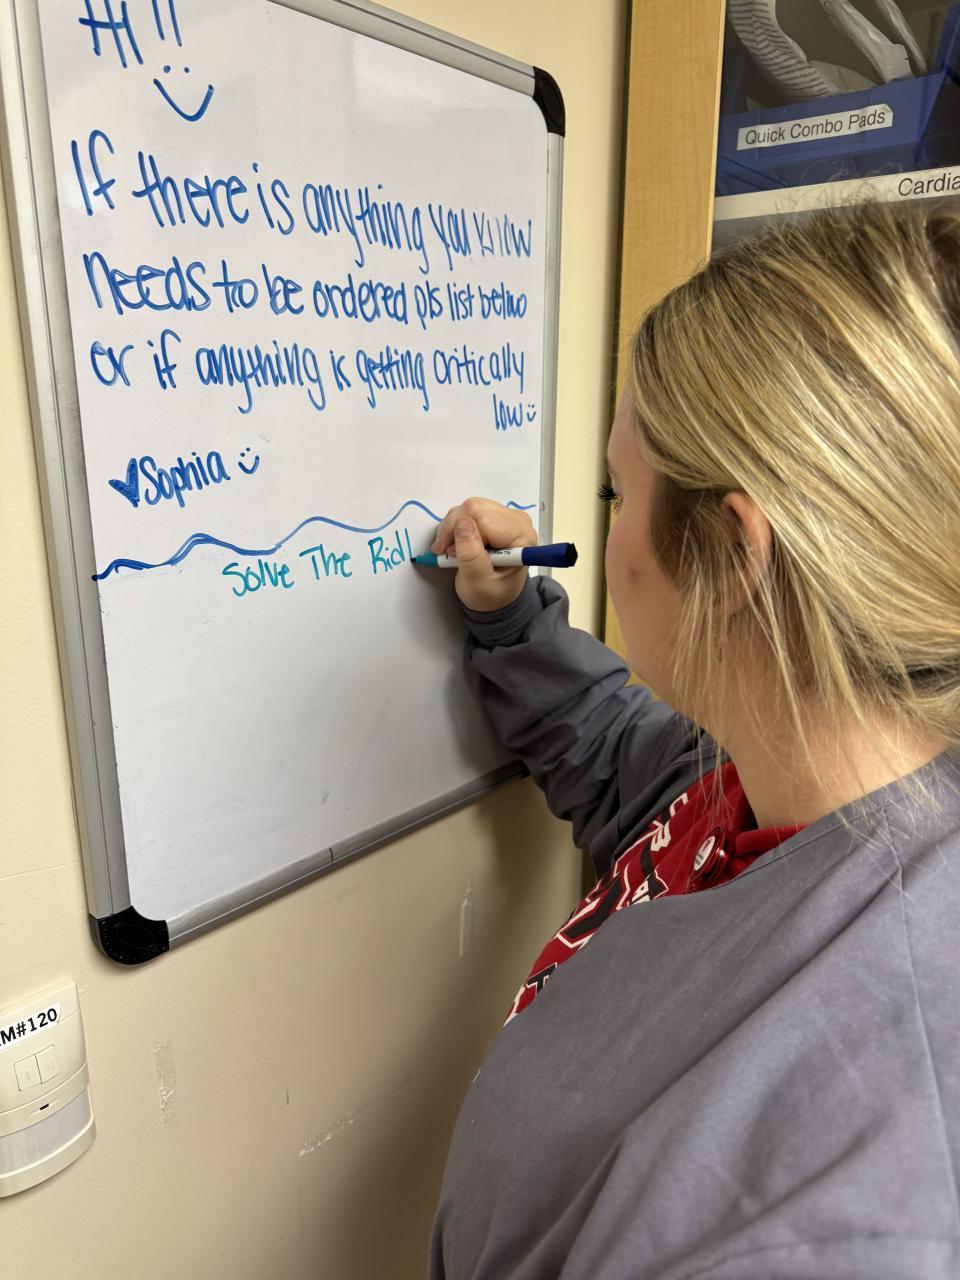 Hi!!
If there is anything you know
needs to be ordered pls list below
or if anything is getting critically
low
Sophia
Solve The Ridl
Quick Combo Pads
Cardia
M#120